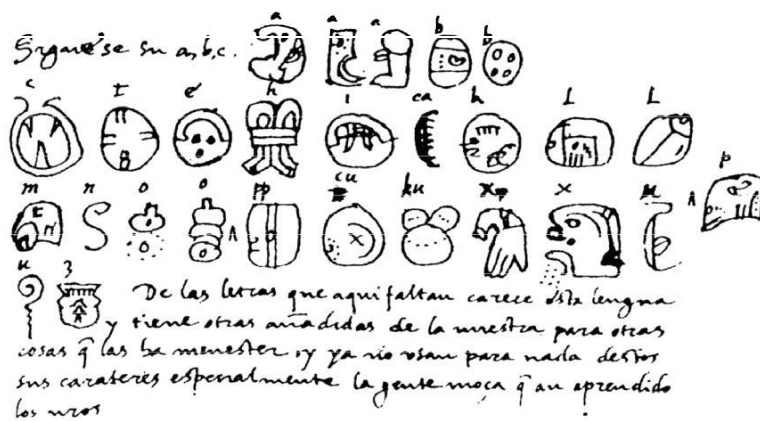 Síguese su a, b, c.
a a a b b
c t é h i ca k l l
m n o o pp cu ku x x u p
u z
De las letras que aqui faltan carece esta lengua
y tiene otras añadidas de la nuestra para otras
cosas q̃ las ha menester, y ya no usan para nada destos
sus carateres especialmente la gente moça q̃ an aprendido
los nros